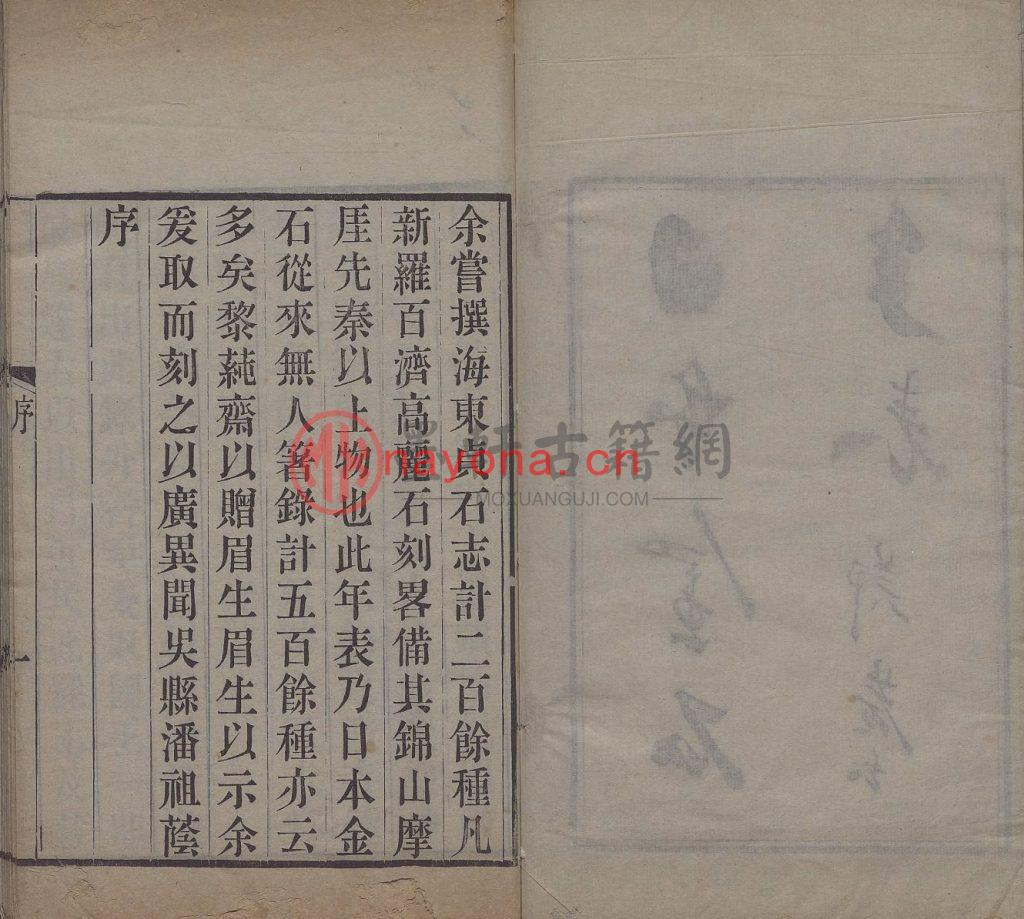 余嘗撰海東貞石志計二百餘種凡
新羅百濟高麗石刻畧備其錦山摩
厓先秦以上物也此年表乃日本金
石從來無人箸錄計五百餘種亦云
多矣黎蒓齋以贈眉生眉生以示余
爰取而刻之以廣異聞吳縣潘祖蔭
序
序
一
古籍網
nayona.cn
MOXUANGUJI.COM